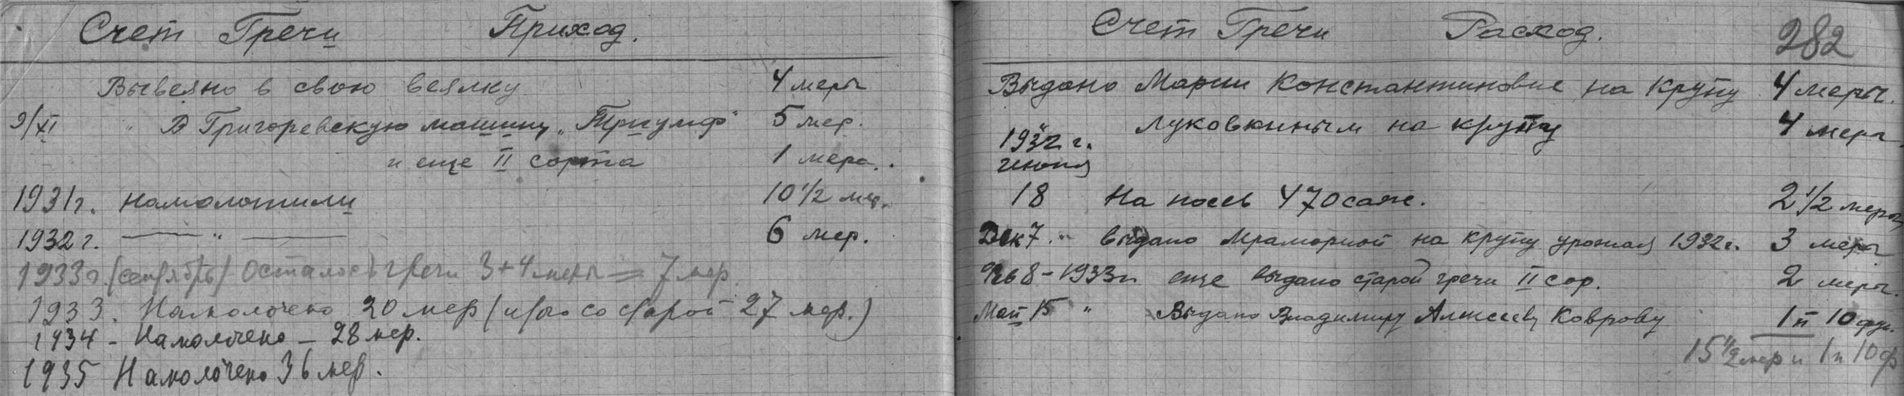 Счет Гречи Приход.
Вывеяно в свою веялку 4 меры
9/XI " В Григоревскую машину „Триумф" 5 мер.
и еще II сорта 1 мера.
1931 г. намолотили 10 1/2 мер.
1932 г. — " — 6 мер.
1933 г. (сентябрь) Осталось гречи 3+4 меры = 7 мер.
1933. Намолочено 20 мер (итого со старой 27 мер.)
1934 - Намолочено - 28 мер.
1935 Намолочено 36 мер.
282
Счет Гречи Расход.
Выдано Марии Константиновне на крупу 4 меры.
" Луковкиным на крупу 4 меры.
1932 г.
июня
18 На посев 470 саж. 2 1/2 меры
Дек 7. " выдано Мраморной на крупу урожая 1932 г. 3 меры
Фев 8 - 1933 г. еще выдано старой гречи II сор. 2 меры.
Май 15 " Выдано Владимиру Алексеев. Коврову 1 п 10 фун.
15 1/2 мер и 1 п 10 ф